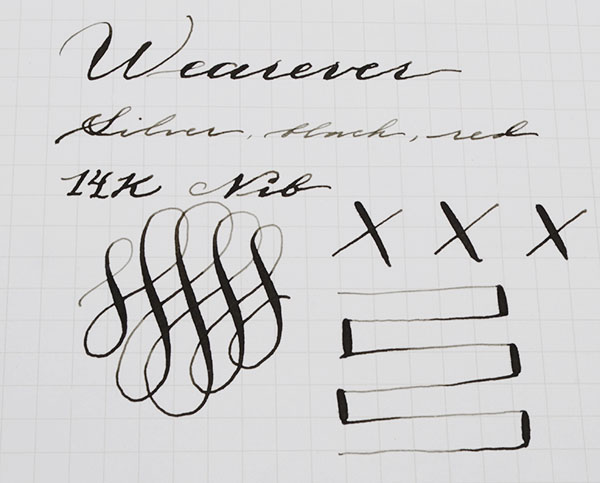 Wearever
Silver, black, red
14K Nib
X X X